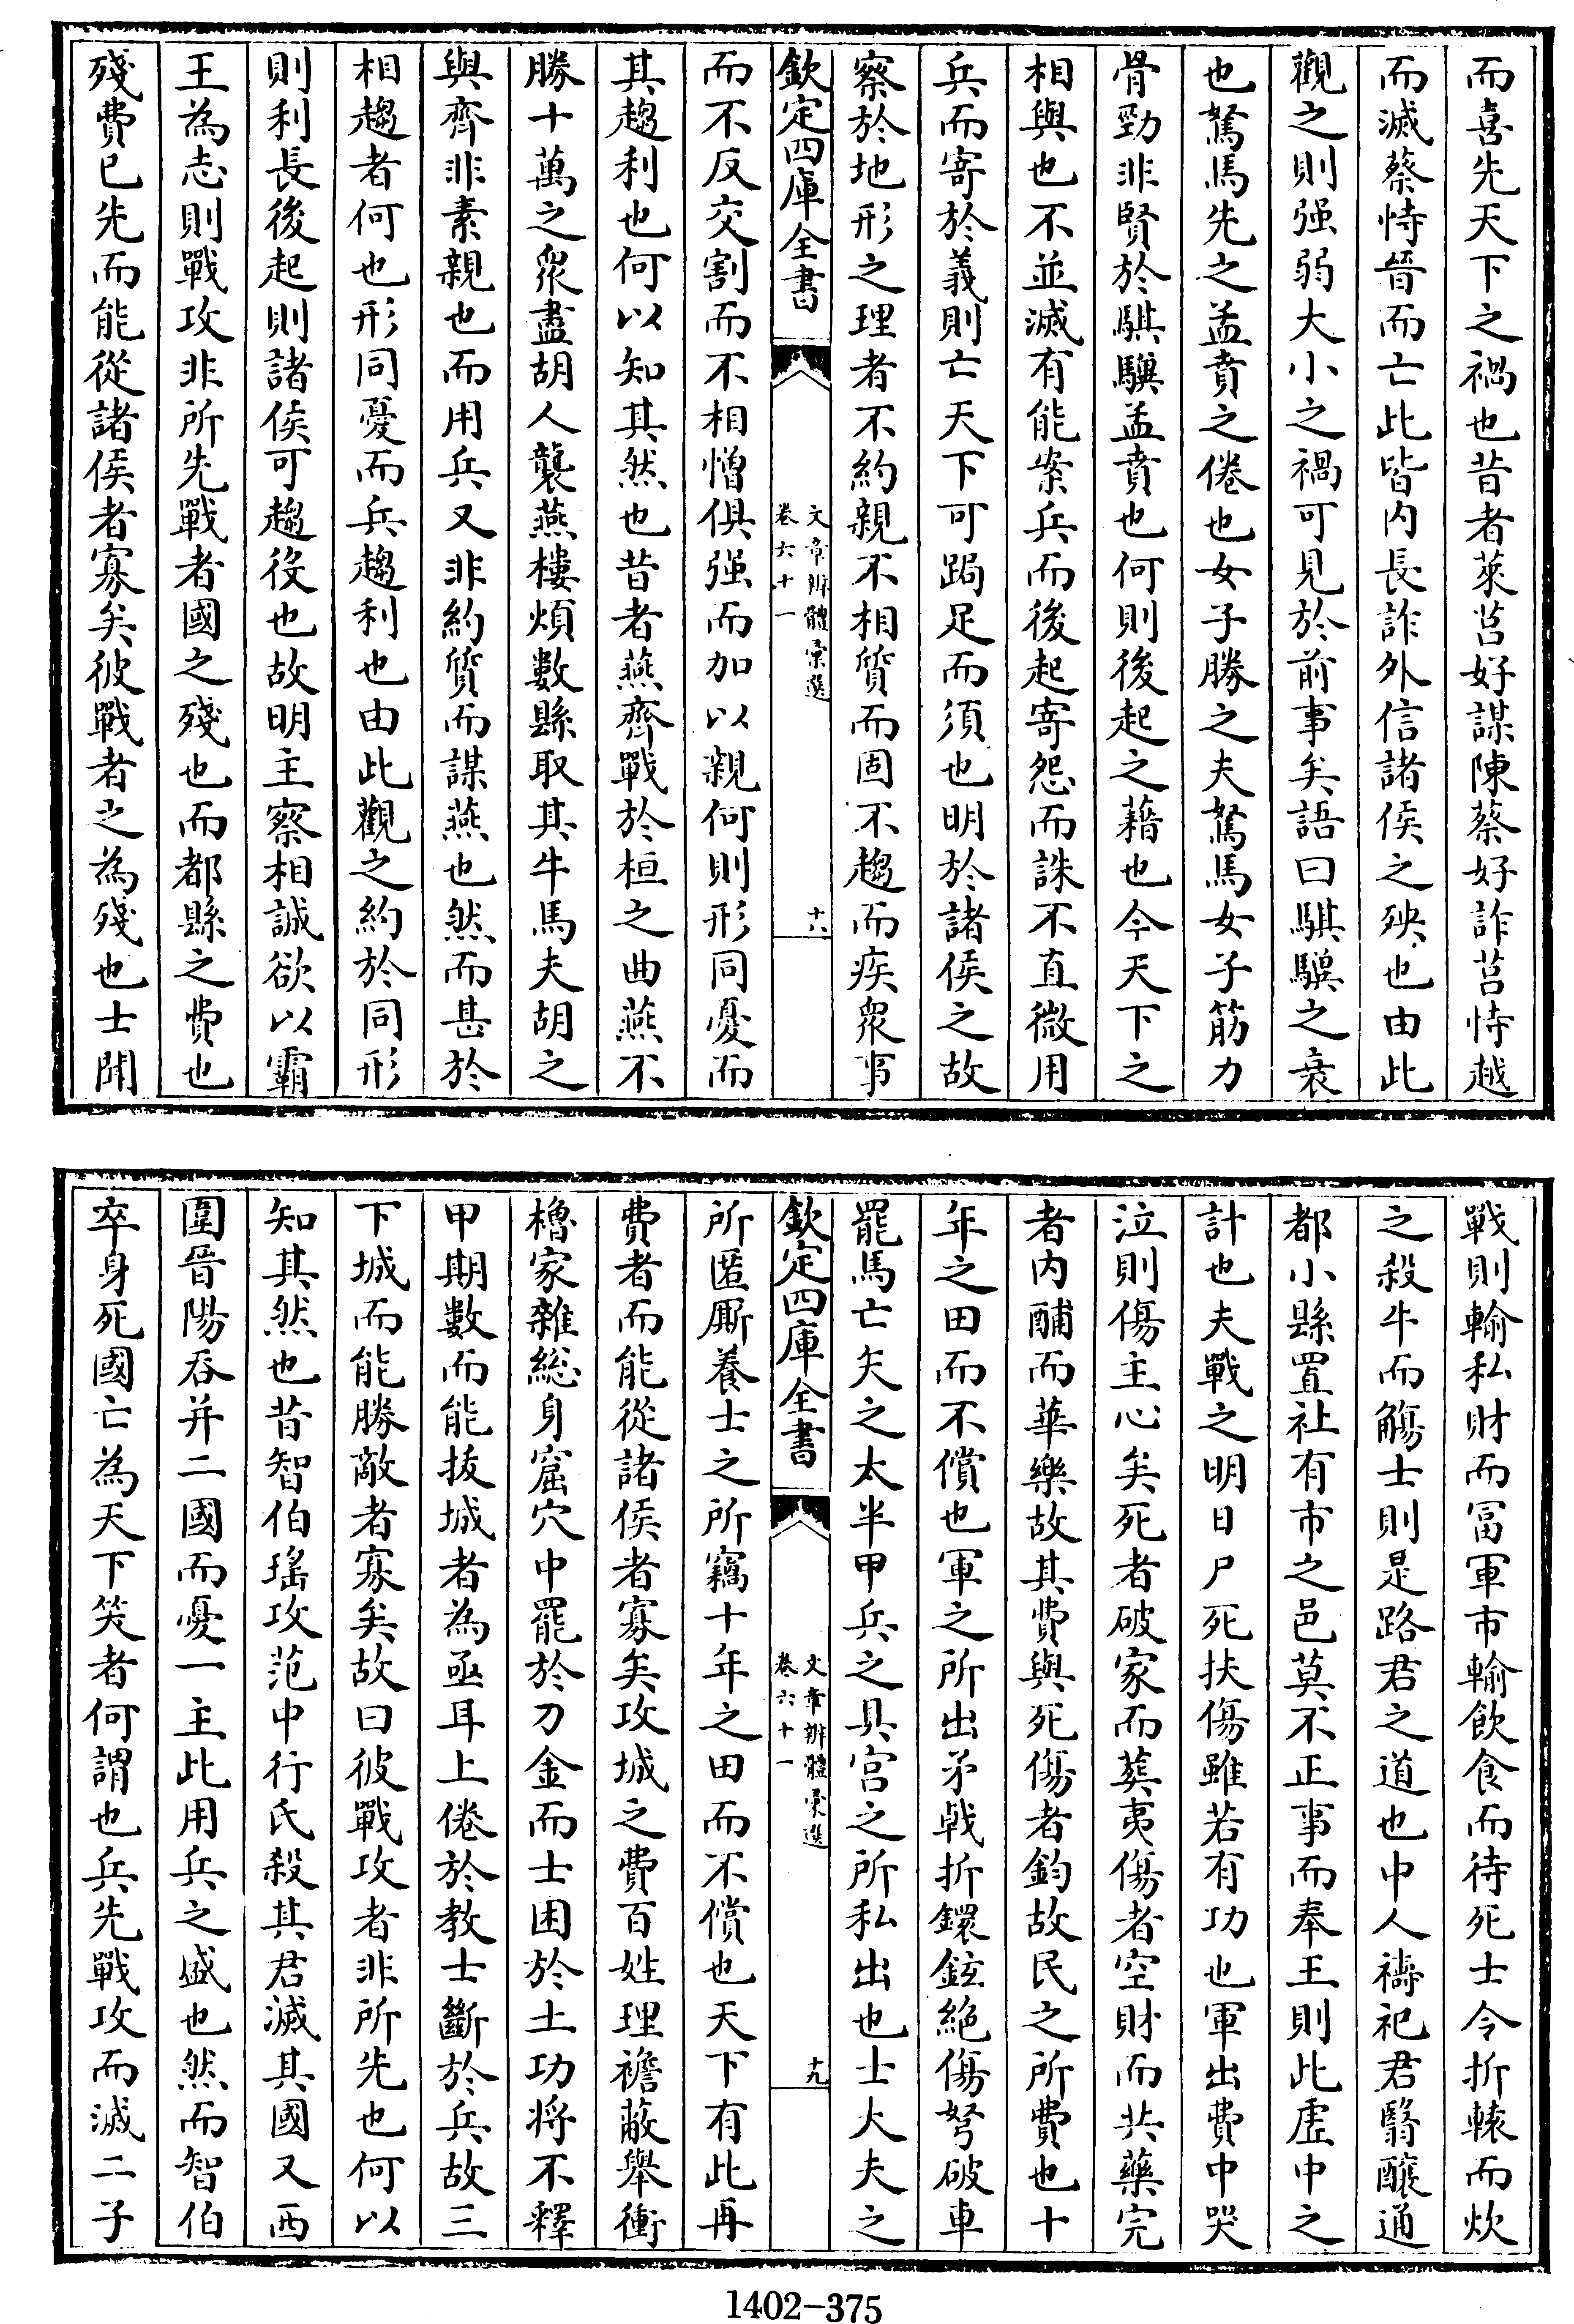 而喜先天下之禍也昔者萊莒好謀陳蔡好詐莒恃越
而滅蔡恃晉而亡此皆内長詐外信諸侯之殃也由此
觀之則强弱大小之禍可見於前事矣語曰騏驥之衰
也駑馬先之孟賁之倦也女子勝之夫駑馬女子筋力
骨勁非賢於騏驥孟賁也何則後起之藉也今天下之
相與也不並滅有能案兵而後起寄怨而誅不直微用
兵而寄於義則亡天下可跼足而須也明於諸侯之故
察於地形之理者不約親不相質而固不趨而疾衆事
欽定四庫全書
文章辨體彙選
卷六十一
十八
而不反交割而不相憎俱强而加以親何則形同憂而
其趨利也何以知其然也昔者燕齊戰於桓之曲燕不
勝十萬之衆盡胡人襲燕樓煩數縣取其牛馬夫胡之
與齊非素親也而用兵又非約質而謀燕也然而甚於
相趨者何也形同憂而兵趨利也由此觀之約於同形
則利長後起則諸侯可趨役也故明主察相誠欲以霸
王為志則戰攻非所先戰者國之殘也而都縣之費也
殘費已先而能從諸侯者寡矣彼戰者之為殘也士聞
戰則輸私財而冨軍市輸飲食而待死士令折轅而炊
之殺牛而觴士則是路君之道也中人禱祀君翳釀通
都小縣置社有市之邑莫不正事而奉王則此虚中之
計也夫戰之明日尸死扶傷雖若有功也軍出費中哭
泣則傷主心矣死者破家而葬夷傷者空財而共藥完
者内酺而華樂故其費與死傷者鈞故民之所費也十
年之田而不償也軍之所出矛戟折鐶鉉絶傷弩破車
罷馬亡矢之太半甲兵之具宫之所私出也士大夫之
欽定四庫全書
文章辨體彙選
卷六十一
十九
所匿厮養士之所竊十年之田而不償也天下有此再
費者而能從諸侯者寡矣攻城之費百姓理襜蔽舉衝
櫓家雜總身窟穴中罷於刀金而士困於土功将不釋
甲期數而能拔城者為亟耳上倦於教士斷於兵故三
下城而能勝敵者寡矣故曰彼戰攻者非所先也何以
知其然也昔智伯瑤攻范中行氏殺其君滅其國又西
圍晉陽吞并二國而憂一主此用兵之盛也然而智伯
卒身死國亡為天下笑者何謂也兵先戰攻而滅二子
1402-375